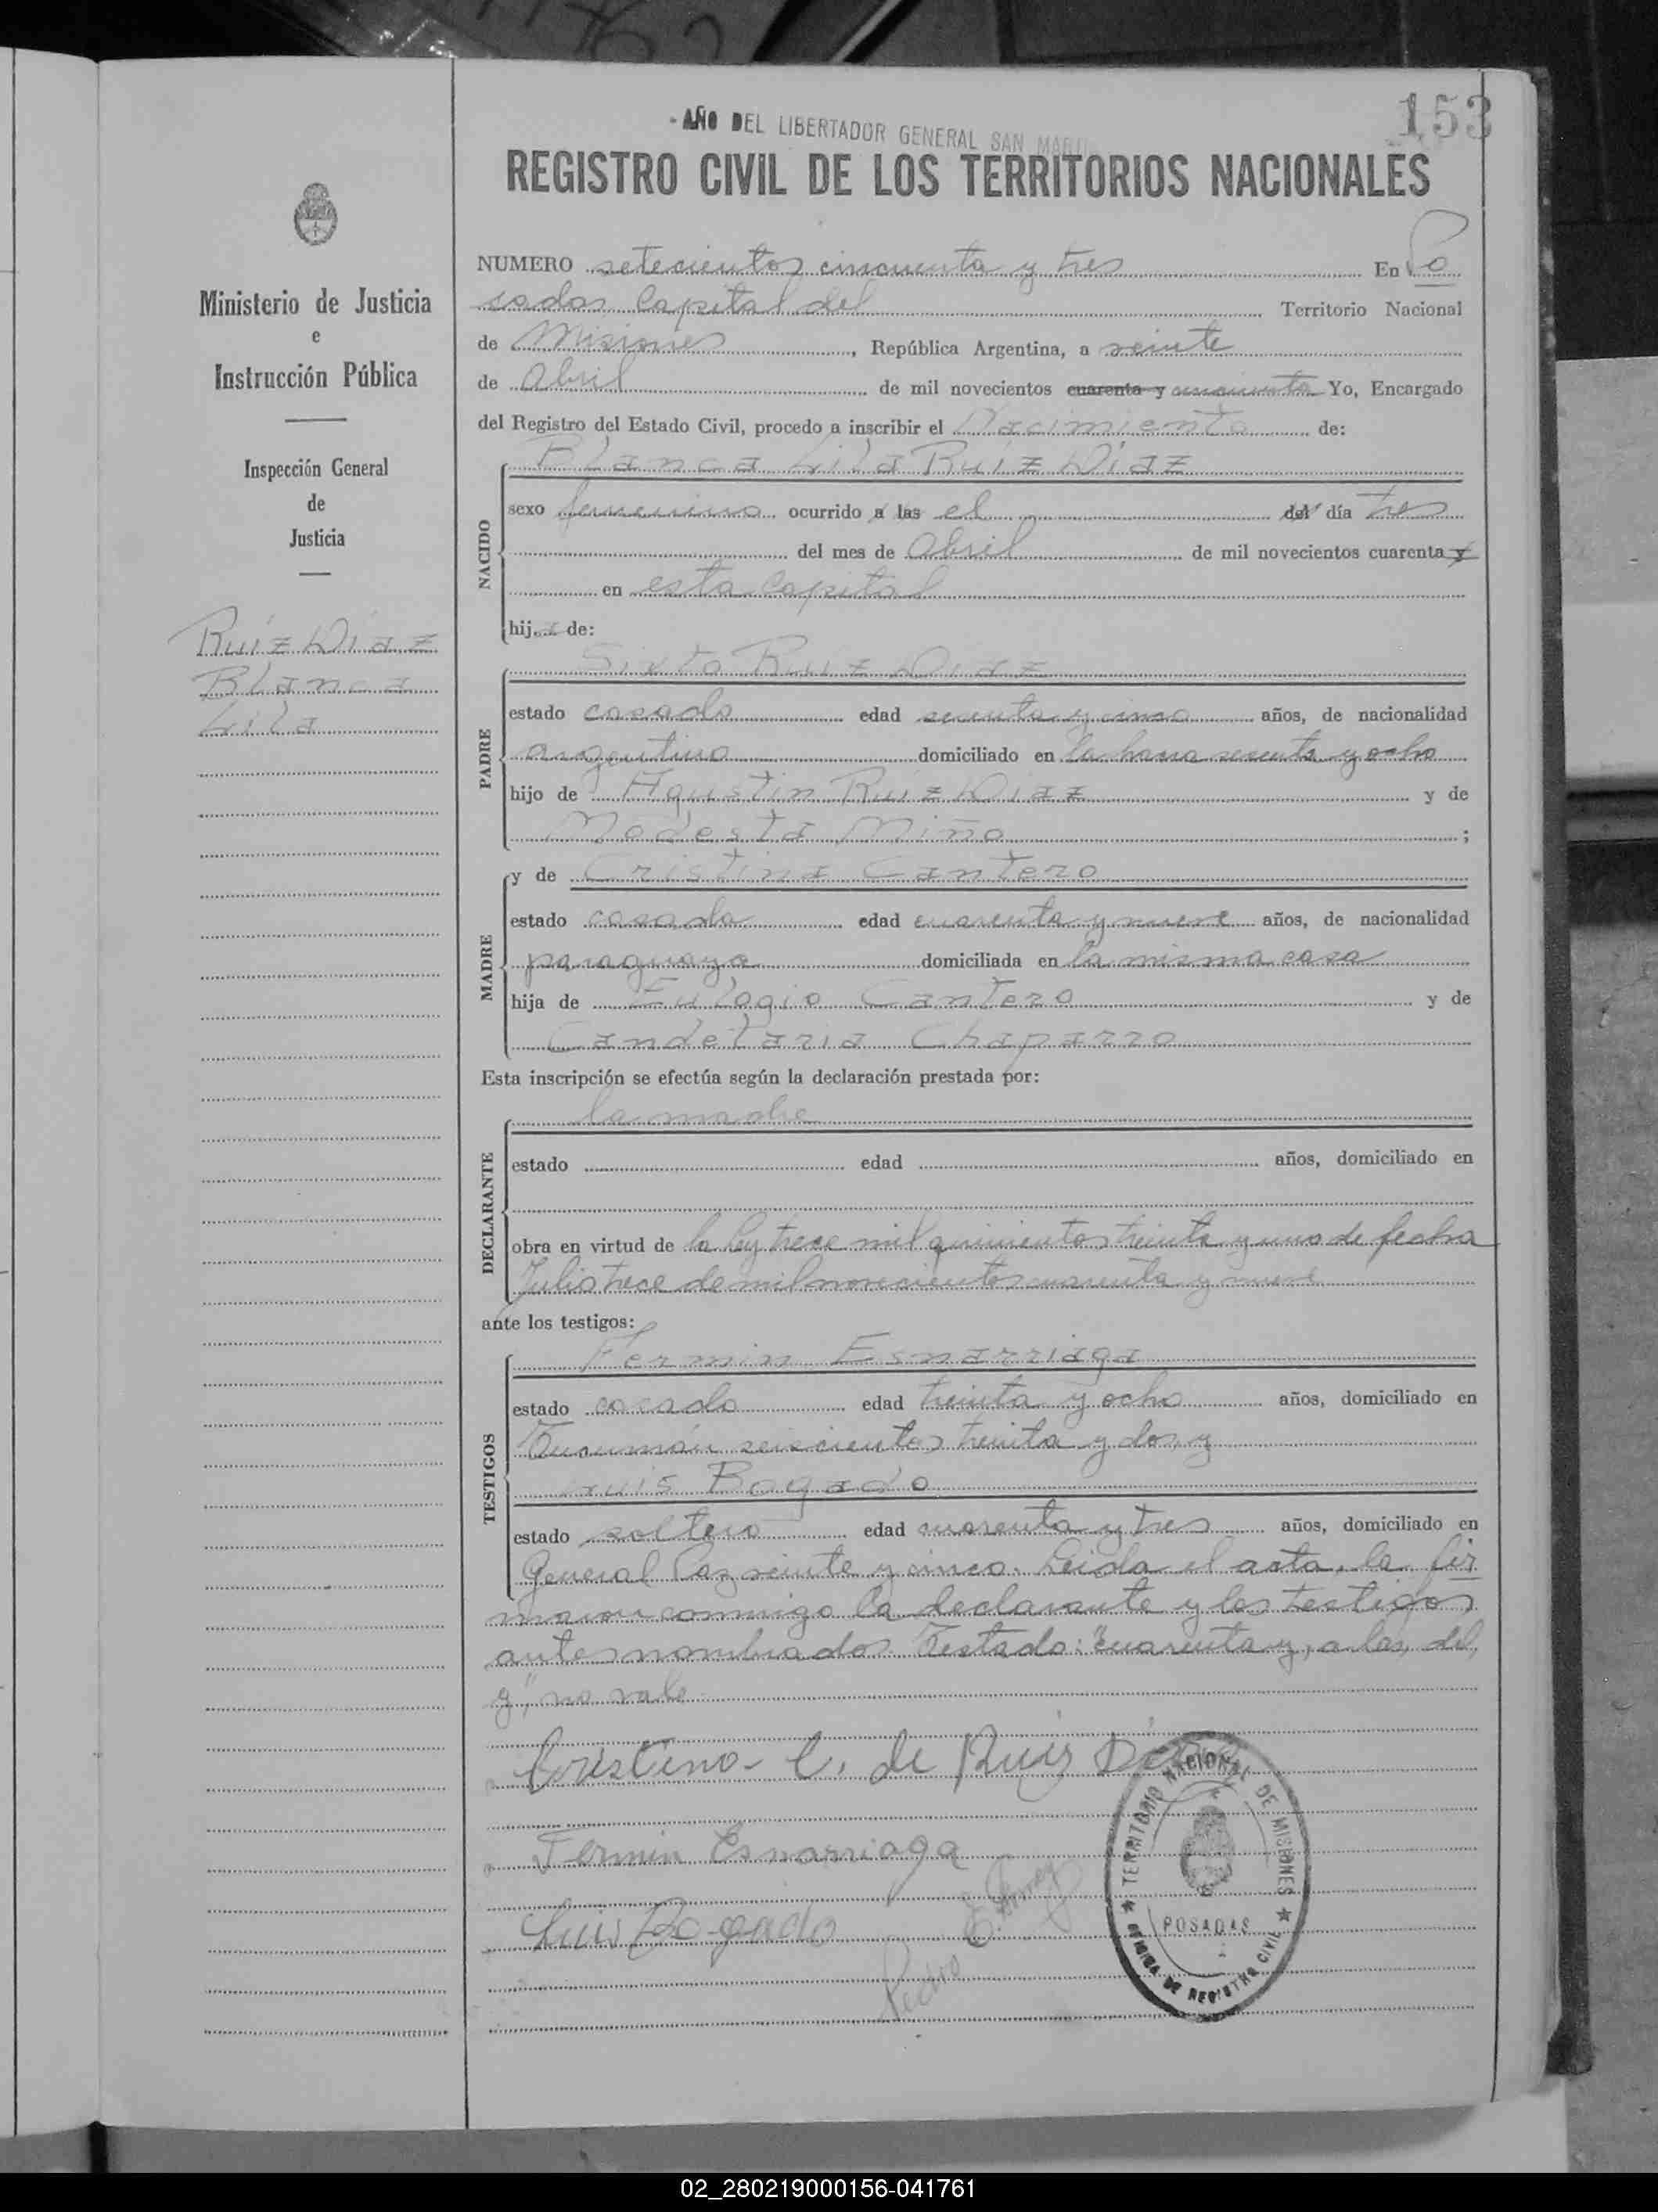 - AÑO DEL LIBERTADOR GENERAL SAN MARTIN
153
REGISTRO CIVIL DE LOS TERRITORIOS NACIONALES
Ministerio de Justicia
e
Instrucción Pública
Inspección General
de
Justicia
Ruiz Diaz
Blanca
Lila
NUMERO setecientos cincuenta y tres En Po
sadas Capital del Territorio Nacional
de Misiones, República Argentina, a veinte
de Abril de mil novecientos cuarenta y cincuenta Yo, Encargado
del Registro del Estado Civil, procedo a inscribir el Nacimiento de:
Blanca Lila Ruiz Diaz
NACIDO
sexo femenino ocurrido a las el del día tres
del mes de Abril de mil novecientos cuarenta y
en esta Capital
hija de:
Sixto Ruiz Diaz
PADRE
estado casado edad y cinco años, de nacionalidad
argentino domiciliado en la y ocho
hijo de Agustin Ruiz Diaz y de
Modesta Miño ;
y de Cristina Cantero
MADRE
estado casada edad cuarenta y nueve años, de nacionalidad
paraguaya domiciliada en la misma casa
hija de Eulogio Cantero y de
Candelaria Chaparro
Esta inscripción se efectúa según la declaración prestada por:
la madre
DECLARANTE
estado edad años, domiciliado en
obra en virtud de la ley trece mil quinientos treinta y uno de fecha
Julio trece de mil novecientos cuarenta y nueve
ante los testigos:
Fermin Esnarriaga
TESTIGOS
estado casado edad treinta y ocho años, domiciliado en
Tucumán seiscientos treinta y dos, y
Luis Bogado
estado soltero edad cuarenta y tres años, domiciliado en
General Paz veinte y cinco. Leida el acta, la fir
maron conmigo la declarante y los testigos
antes nombrados. Testado: "cuarenta y, a las, del,
y", no vale
Cristina C. de Ruiz Diaz
Fermin Esnarriaga
Luis Bogado
Pedro E.
TERRITORIO NACIONAL DE MISIONES
POSADAS
OFICINA DE REGISTRO CIVIL
02_280219000156-041761